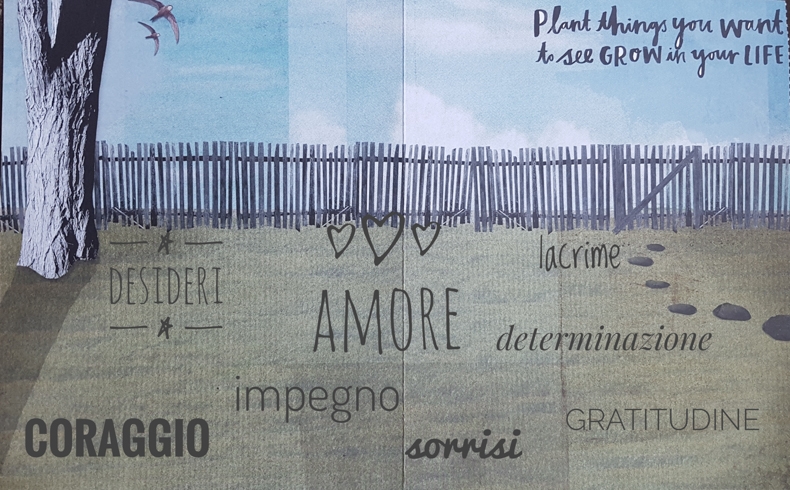 Plant things you want
to see GROW in your LIFE
DESIDERI
AMORE
lacrime
determinazione
impegno
CORAGGIO
sorrisi
GRATITUDINE